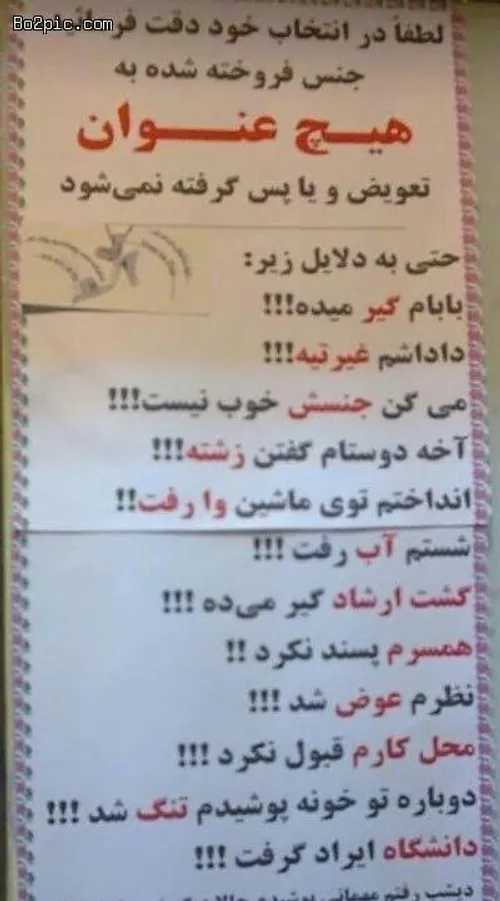 Bo2pic.com
لطفاً در انتخاب خود دقت
جنس فروخته شده به
هیچ عنوان
تعویض و یا پس گرفته نمی‌شود
حتی به دلایل زیر:
بابام گیر میده!!!
داداشم غیرتیه!!!
می گن جنسش خوب نیست!!!
آخه دوستام گفتن زشته!!!
انداختم توی ماشین وا رفت!!
شستم آب رفت !!!
گشت ارشاد گیر می‌ده !!!
همسرم پسند نکرد !!
نظرم عوض شد !!!
محل کارم قبول نکرد !!!
دوباره تو خونه پوشیدم تنگ شد !!!
دانشگاه ایراد گرفت !!!
دیشب رفتم مهمانی پوشیدم